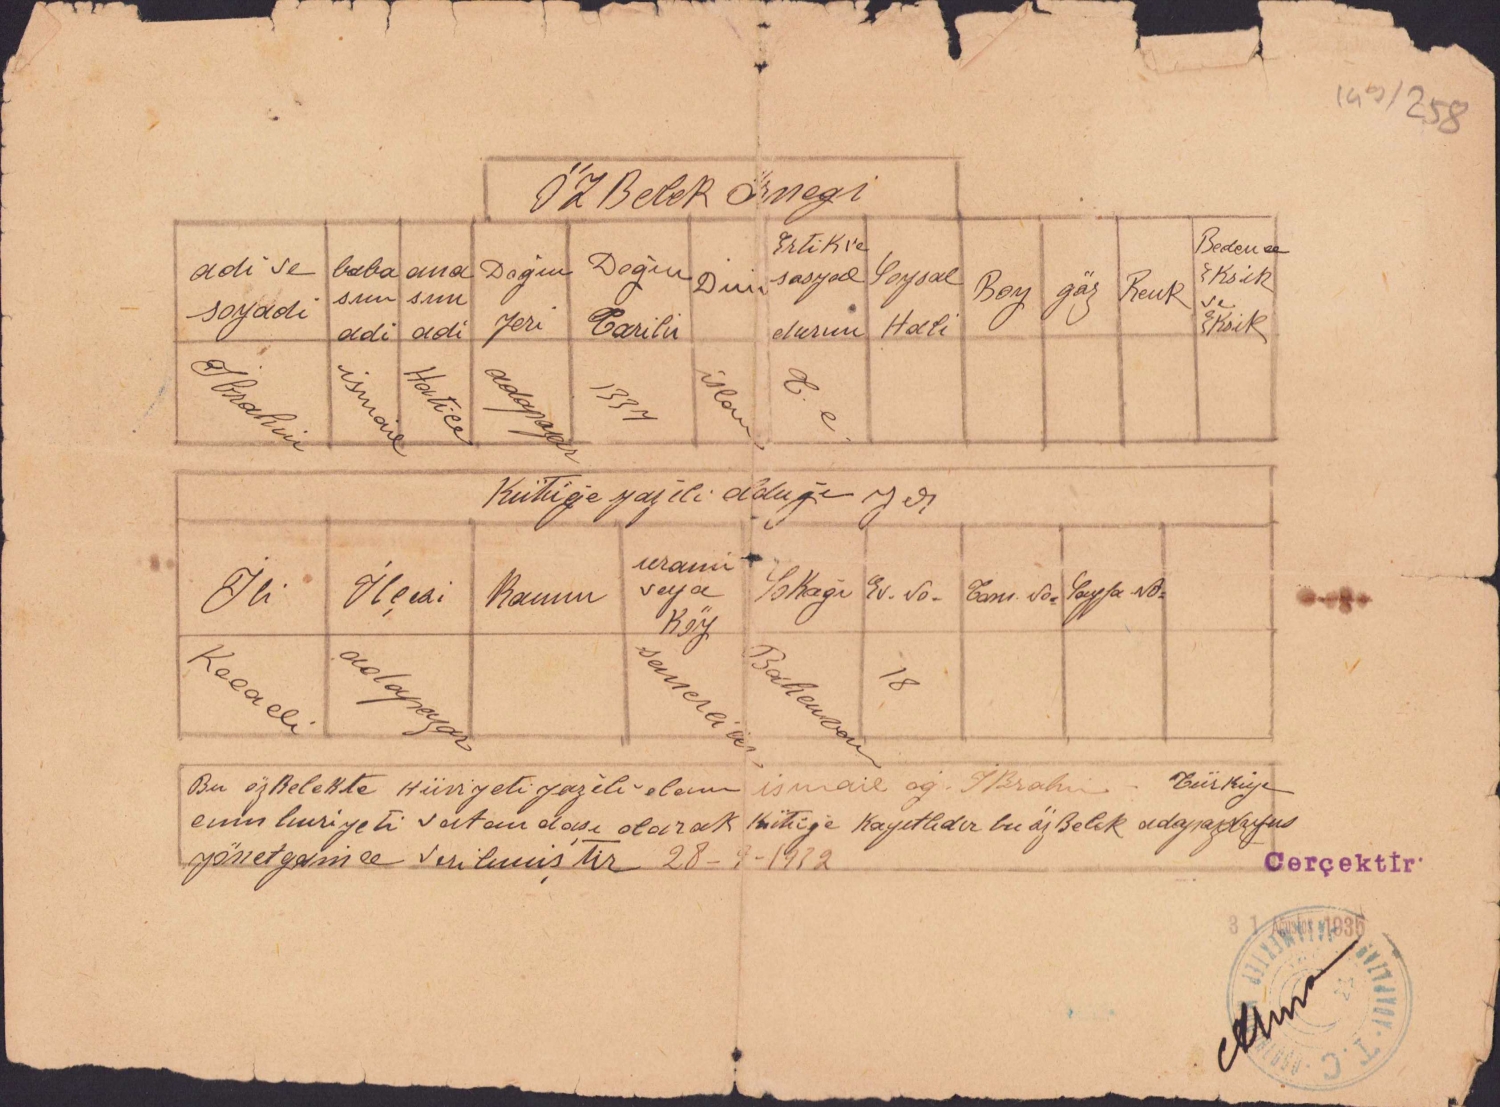 /258
ÖZ Belek örnegi
adi ve soyadi
baba sının adi
ana sının adi
Doğum yeri
Doğum Tarihi
Dini
Ertik ve sosyal durum
Soysal Hali
Boy
göz
Renk
Bedence Eksik ve Eksik
İbrahim
ismail
Hatice
adapazar
1337
islam
T. C.
Kütüğe yazılı olduğu yer
İli
İlçesi
Kamun
uramı veya Köy
Sokağı
Ev. No-
Cam. No-
Sayfa No-
Kocaeli
adapazar
semerciler
Bahcıvan
18
Bu özbelekte Hüviyeti yazılı olan ismail oğ. İBrahim Türkiye
cumhuriyeti vatandaşı olarak Kütüğe Kayıtlıdır bu özBelek adapazarı
verilmiştir 28-9-1932
Gerçektir
31 Ağustos 1936
T. C.